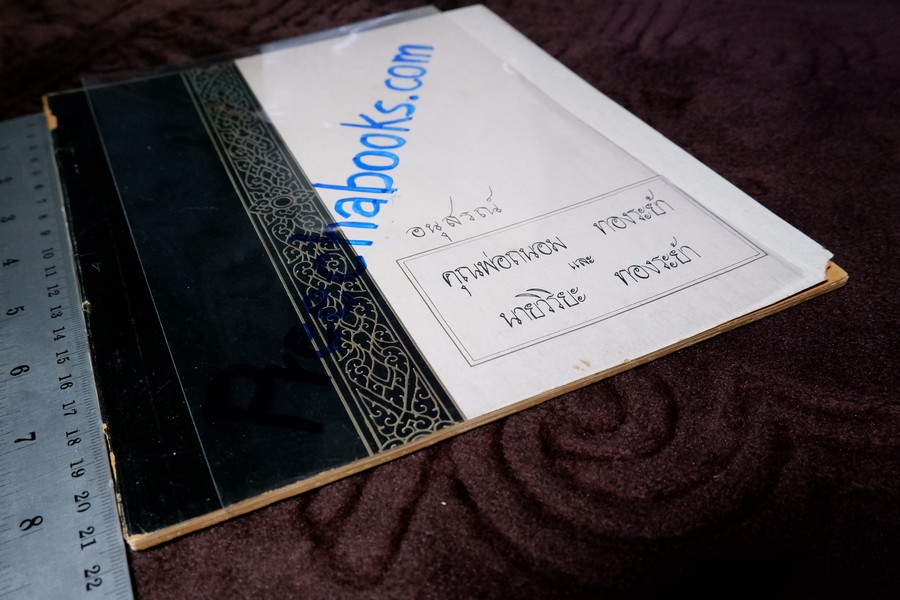 อนุสรณ์
คุณพ่อถนอม ทองระย้า
และ
นายวิริยะ ทองระย้า
Preechabooks.com
3
4
5
6
7
8
8
9
10
11
12
13
14
15
16
17
18
19
20
21
22